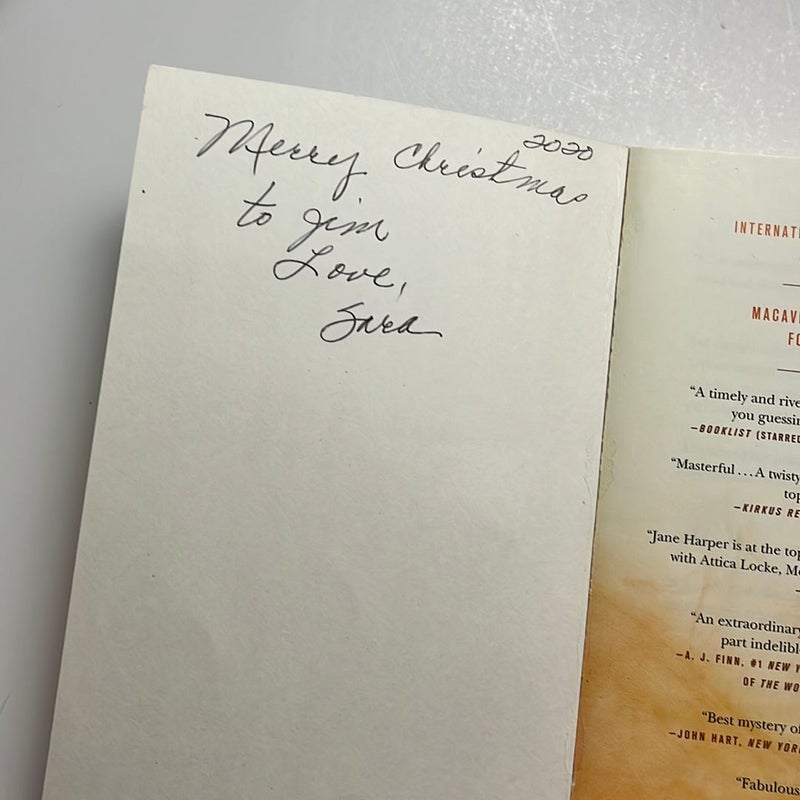 2020
Merry Christmas
to Jim
Love,
Sara
INTERNATI
MACAVI
FO
“A timely and rive
you guessin
—BOOKLIST (STARRED
“Masterful . . . A twisty
top
—KIRKUS RE
“Jane Harper is at the top
with Attica Locke, Mo
“An extraordinary
part indelibl
—A. J. FINN, #1 NEW Y
OF THE WO
“Best mystery of
—JOHN HART, NEW YOR
“Fabulous